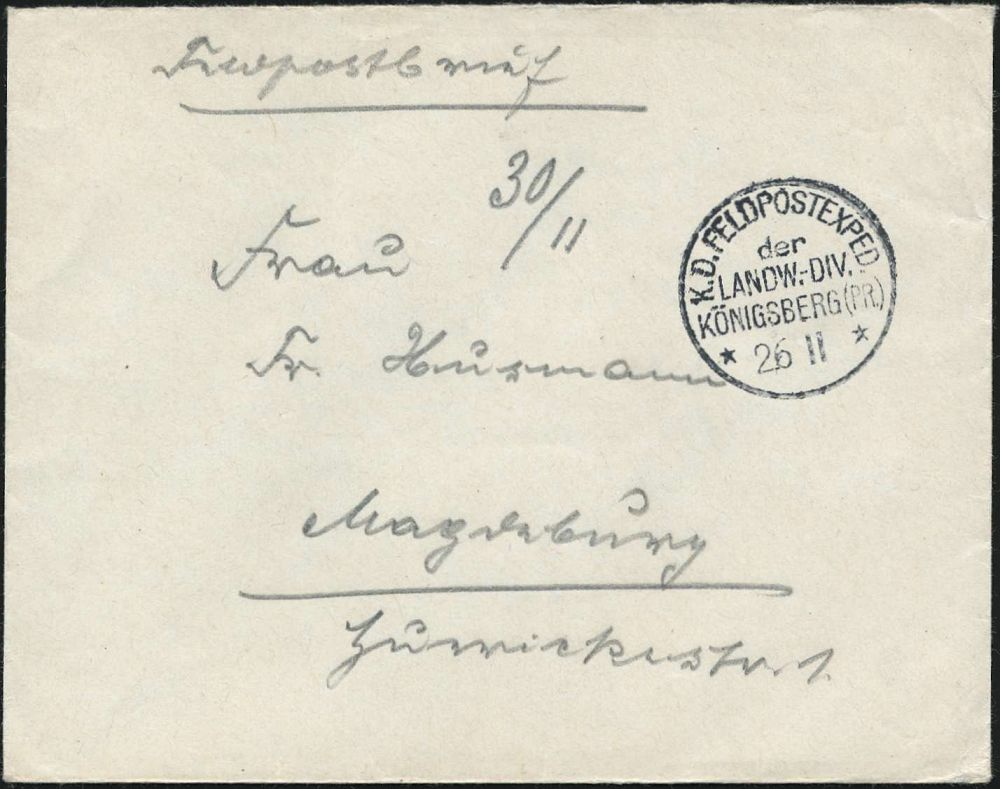 Feldpostbrief
30/11
Frau
Fr. Husmann
Magdeburg
K.D. FELDPOSTEXPED.
der
LANDW.-DIV.
KÖNIGSBERG (PR.)
* 26 11 *